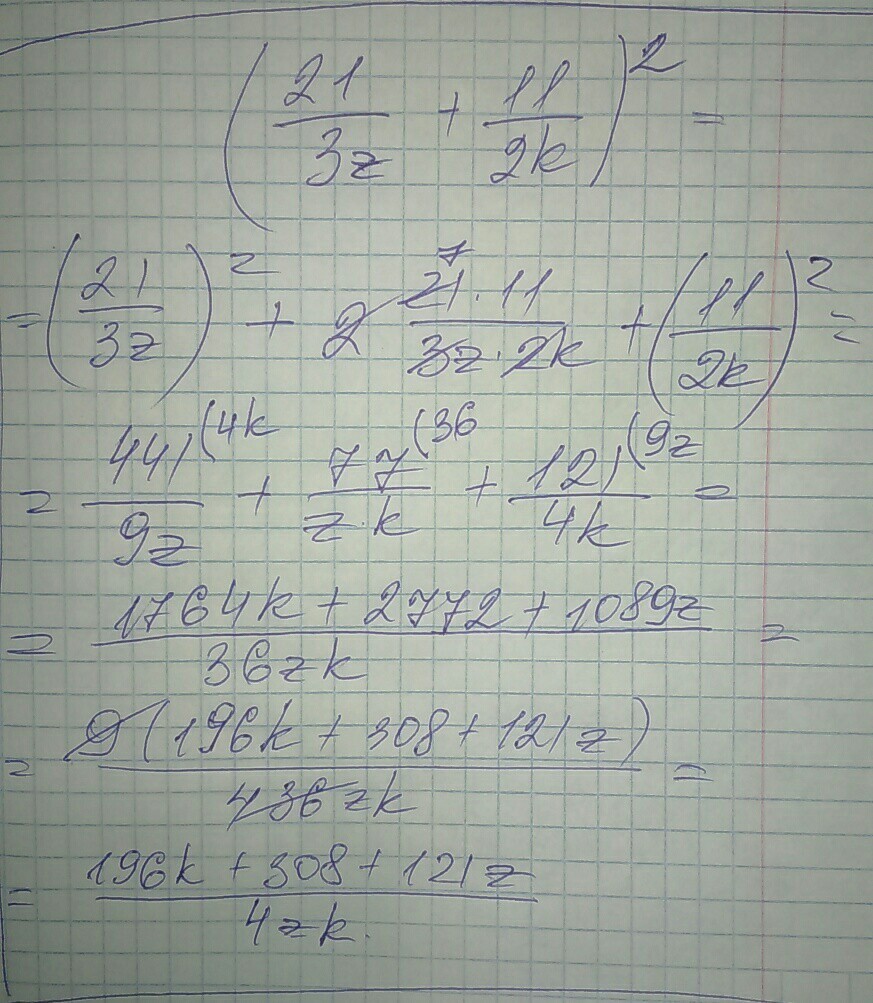 (21/3z + 11/2k)² =
= (21/3z)² + 2 21·11/3z·2k + (11/2k)² = 7
= 441/9z (4k + 77/z·k (36 + 121/4k (9z =
= 1764k + 2772 + 1089z/36zk =
= 9(196k + 308 + 121z)/4 36zk =
= 196k + 308 + 121z/4zk.